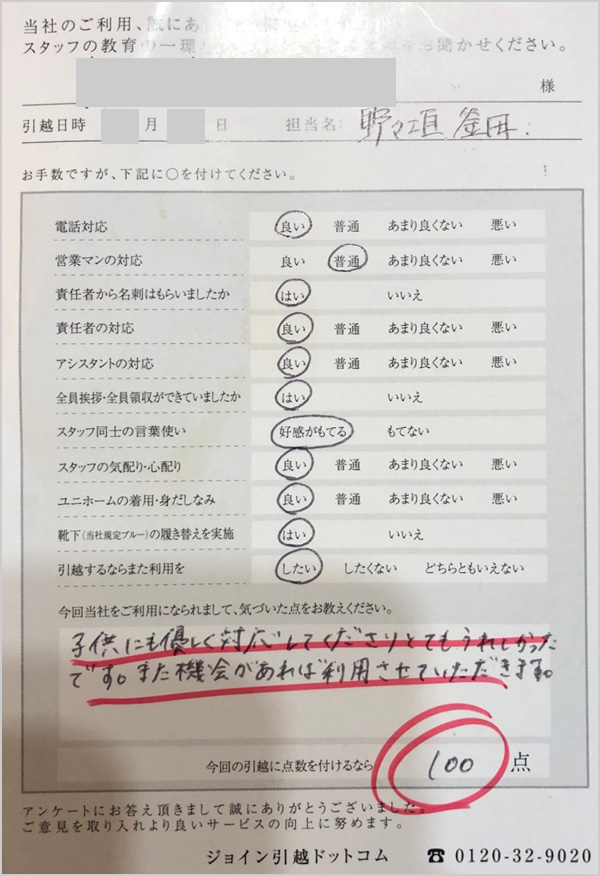 当社のご利用、誠にあ
スタッフの教育の一環 をお聞かせください。
様
引越日時 月 日 担当名: 野々垣 釜田
お手数ですが、下記に○を付けてください。
電話対応 良い 普通 あまり良くない 悪い
営業マンの対応 良い 普通 あまり良くない 悪い
責任者から名刺はもらいましたか はい いいえ
責任者の対応 良い 普通 あまり良くない 悪い
アシスタントの対応 良い 普通 あまり良くない 悪い
全員挨拶・全員領収ができていましたか はい いいえ
スタッフ同士の言葉使い 好感がもてる もてない
スタッフの気配り・心配り 良い 普通 あまり良くない 悪い
ユニホームの着用・身だしなみ 良い 普通 あまり良くない 悪い
靴下(当社規定ブルー)の履き替えを実施 はい いいえ
引越するならまた利用を したい したくない どちらともいえない
今回当社をご利用になられまして、気づいた点をお教えください。
子供にも優しく対応してくださりとてもうれしかった
です。また機会があれば利用させていただきます。
今回の引越に点数を付けるなら 100 点
アンケートにお答え頂きまして誠にありがとうございました。
ご意見を取り入れより良いサービスの向上に努めます。
ジョイン引越ドットコム ☎ 0120-32-9020